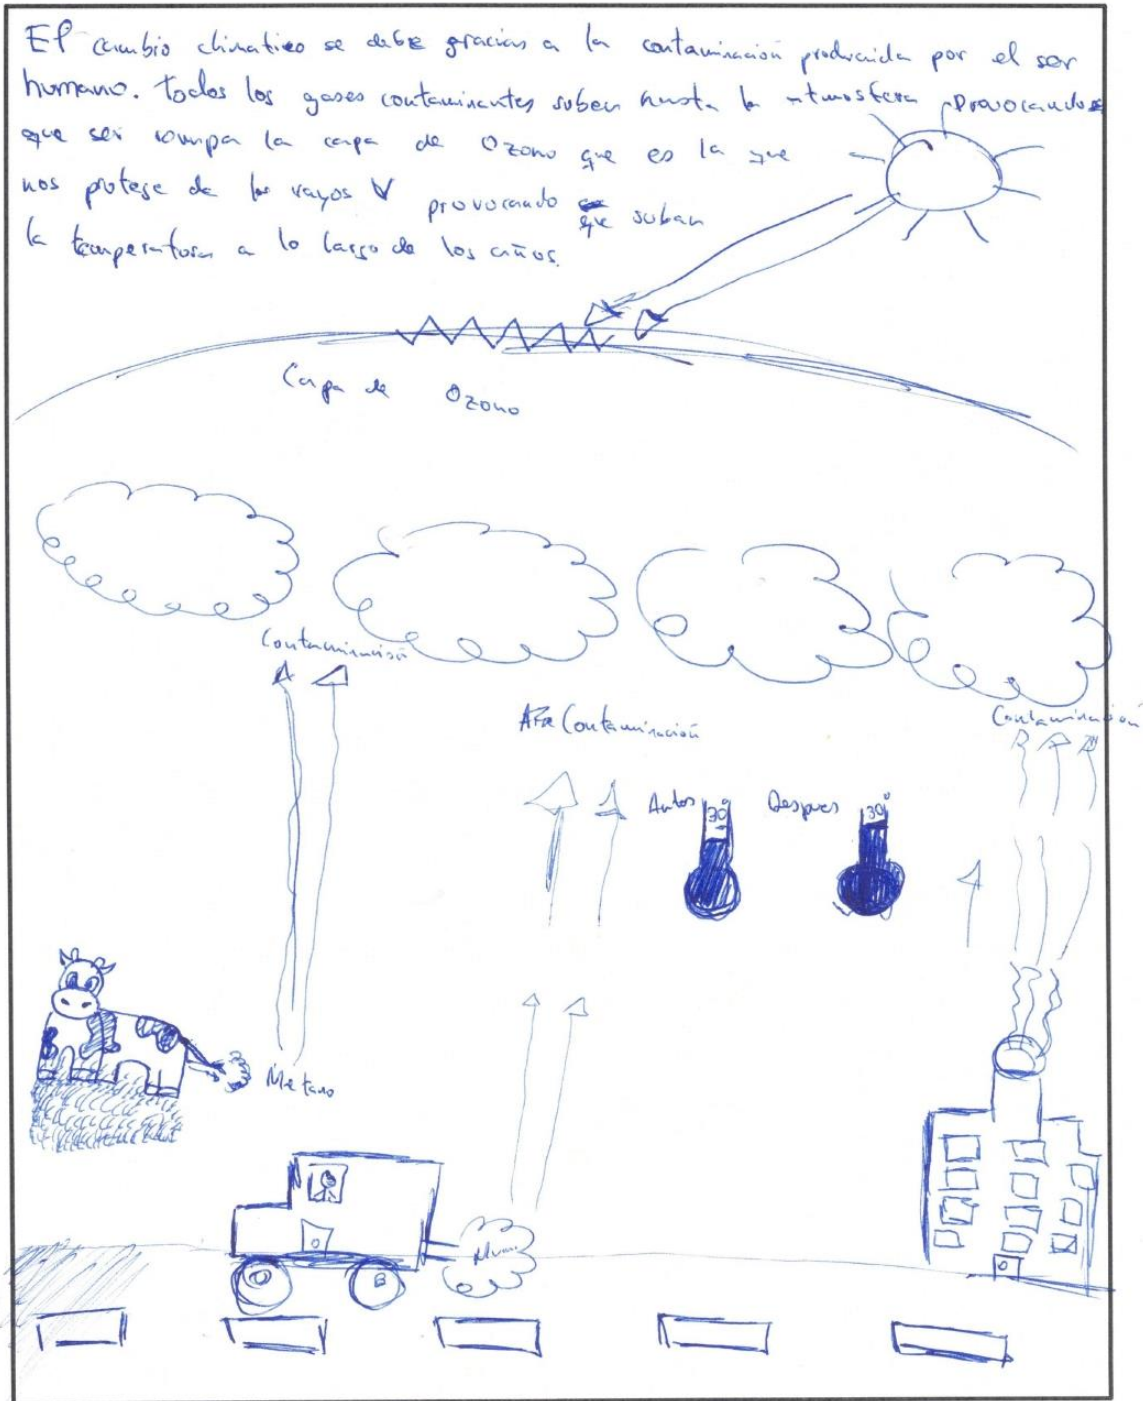 El cambio climatico se debe gracias a la contaminación producida por el ser
humano. todos los gases contaminantes suben hasta la atmosfera provocando
que ser rompa la capa de Ozono que es la que
nos protege de los rayos V provocando que suban
la temperatura a lo largo de los años.
Capa de Ozono
Contaminación
Contaminación
Contaminación
Antes 30° Despues 30°
Metano